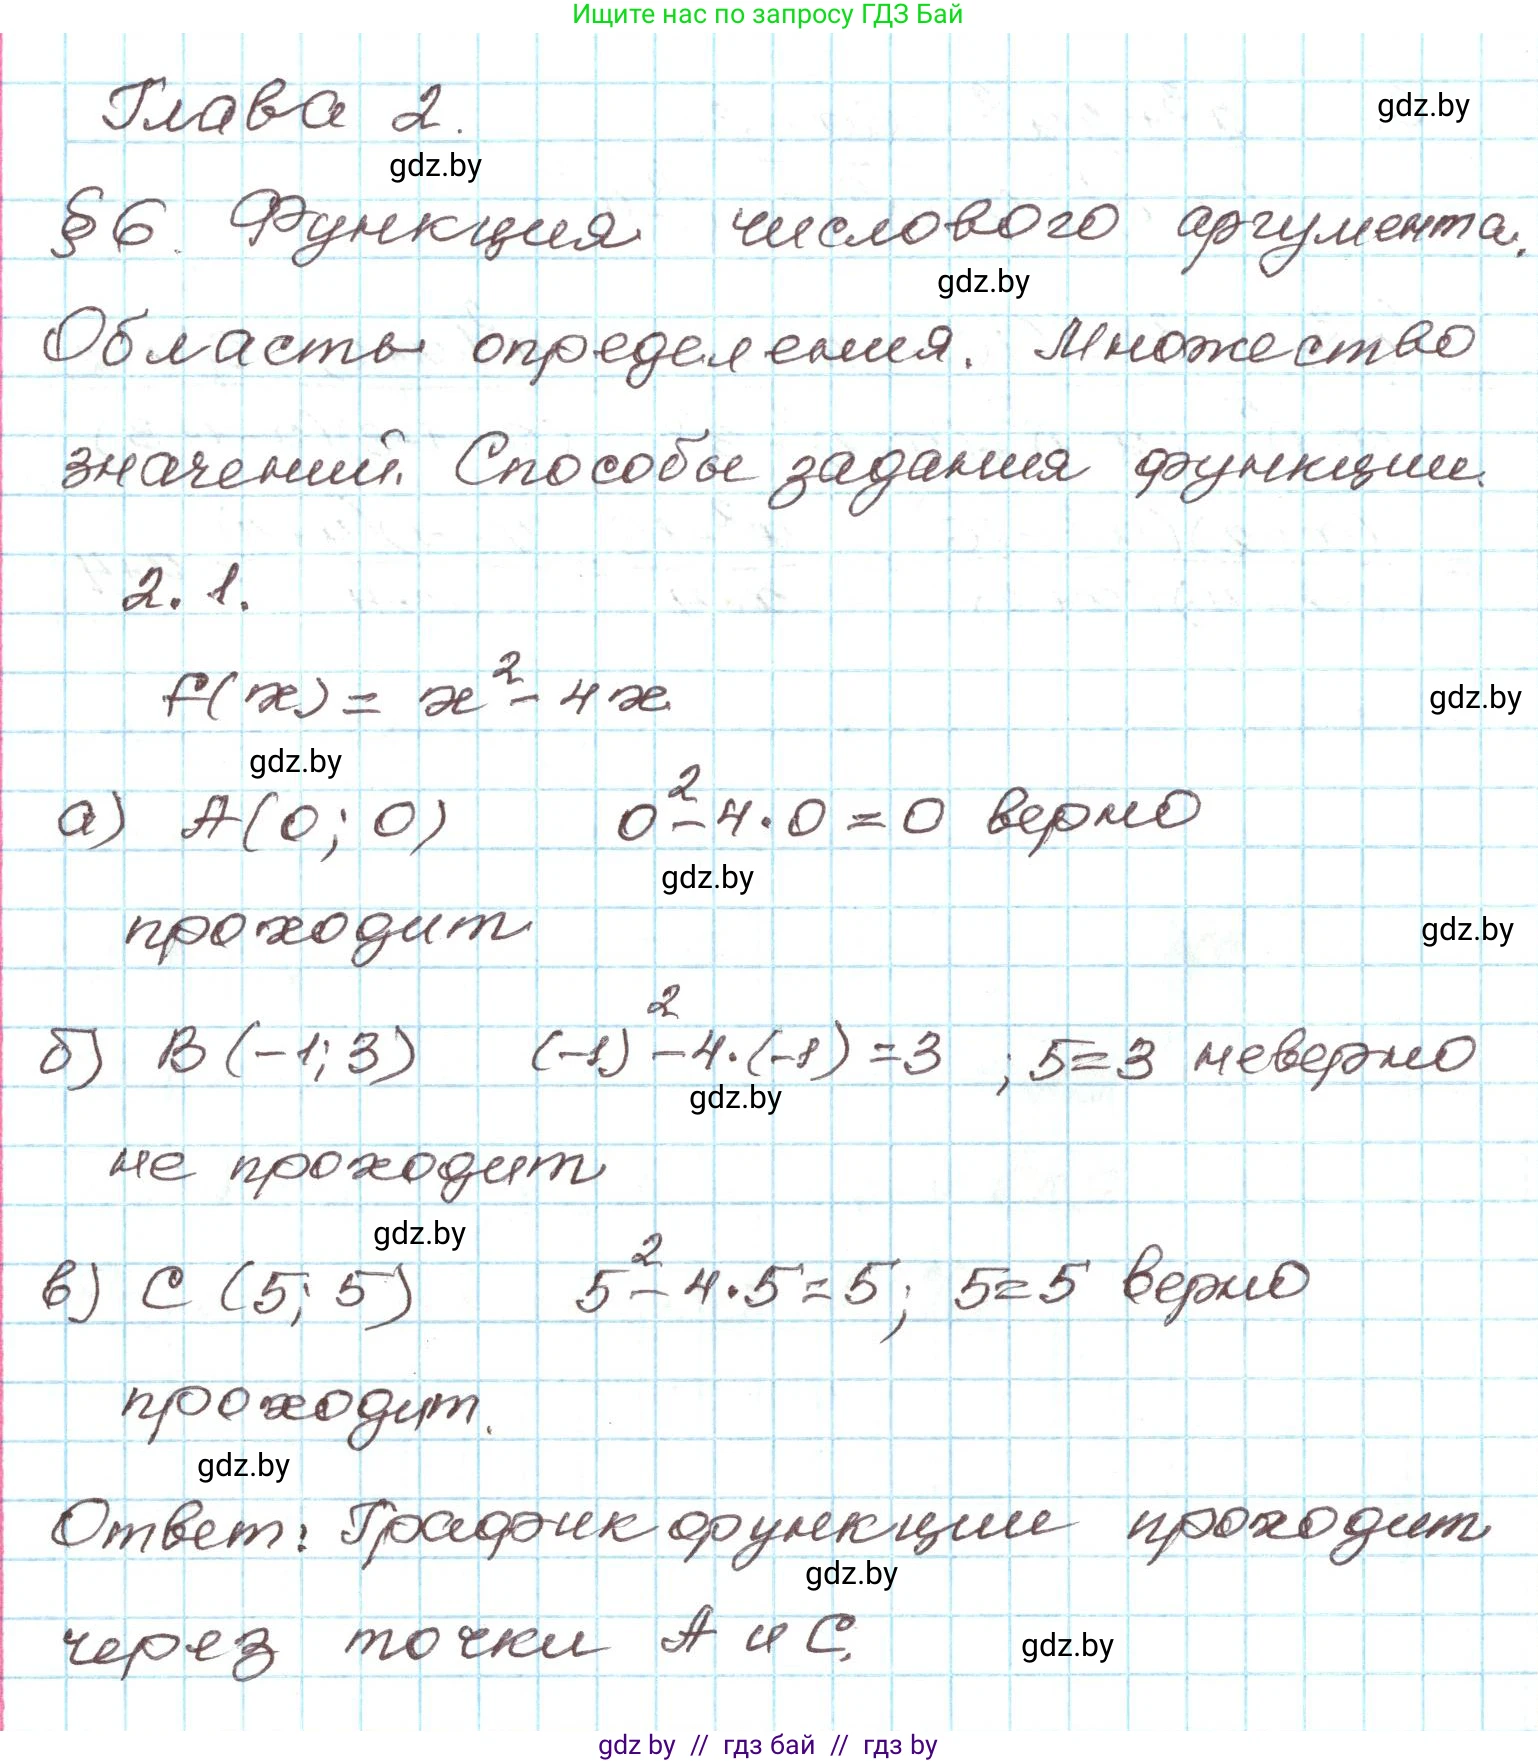 Ищите нас по запросу ГДЗ Бай
Глава 2.
gdz.by
gdz.by
§6. Функция числового аргумента.
gdz.by
Область определения. Множество
значений. Способы задания функции.
2.1.
f(x) = x² - 4x
gdz.by
gdz.by
а) A(0; 0) 0² - 4·0 = 0 верно
gdz.by
проходит
gdz.by
б) B(-1; 3) (-1)² - 4·(-1) = 3 ; 5=3 неверно
gdz.by
не проходит
gdz.by
в) C (5; 5) 5² - 4·5 = 5; 5=5 верно
проходит.
gdz.by
Ответ: График функции проходит
gdz.by
через точки A и C.
gdz.by
gdz by // гдз бай // гдз by